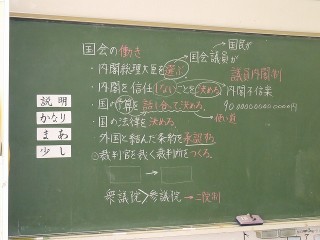 国会の働き
国民が
国会議員が
・内閣総理大臣を選ぶ
議員内閣制
・内閣を信任(しない)ことを決める
内閣不信案
・国の予算を話し合って決める。
・国の法律を決める。
使い道
外国と結んだ条約を承認する
◎裁判官を裁く裁判所をつくる。
衆議院>参議院→二院制
説明
かなり
まあ
少し